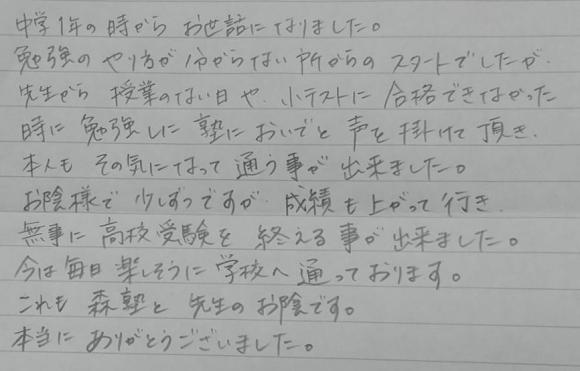 中学1年の時から お世話になりました。
勉強の やり方が 分からない所からの スタートでしたが、
先生から 授業のない日や、小テストに 合格できなかった
時に 勉強しに 塾においでと 声を掛けて頂き、
本人も その気になって 通う事が 出来ました。
お陰様で 少しずつですが、成績も上がって行き、
無事に 高校受験を 終える事が出来ました。
今は毎日 楽しそうに 学校へ 通っております。
これも 森塾と 先生の お陰です。
本当に ありがとうございました。